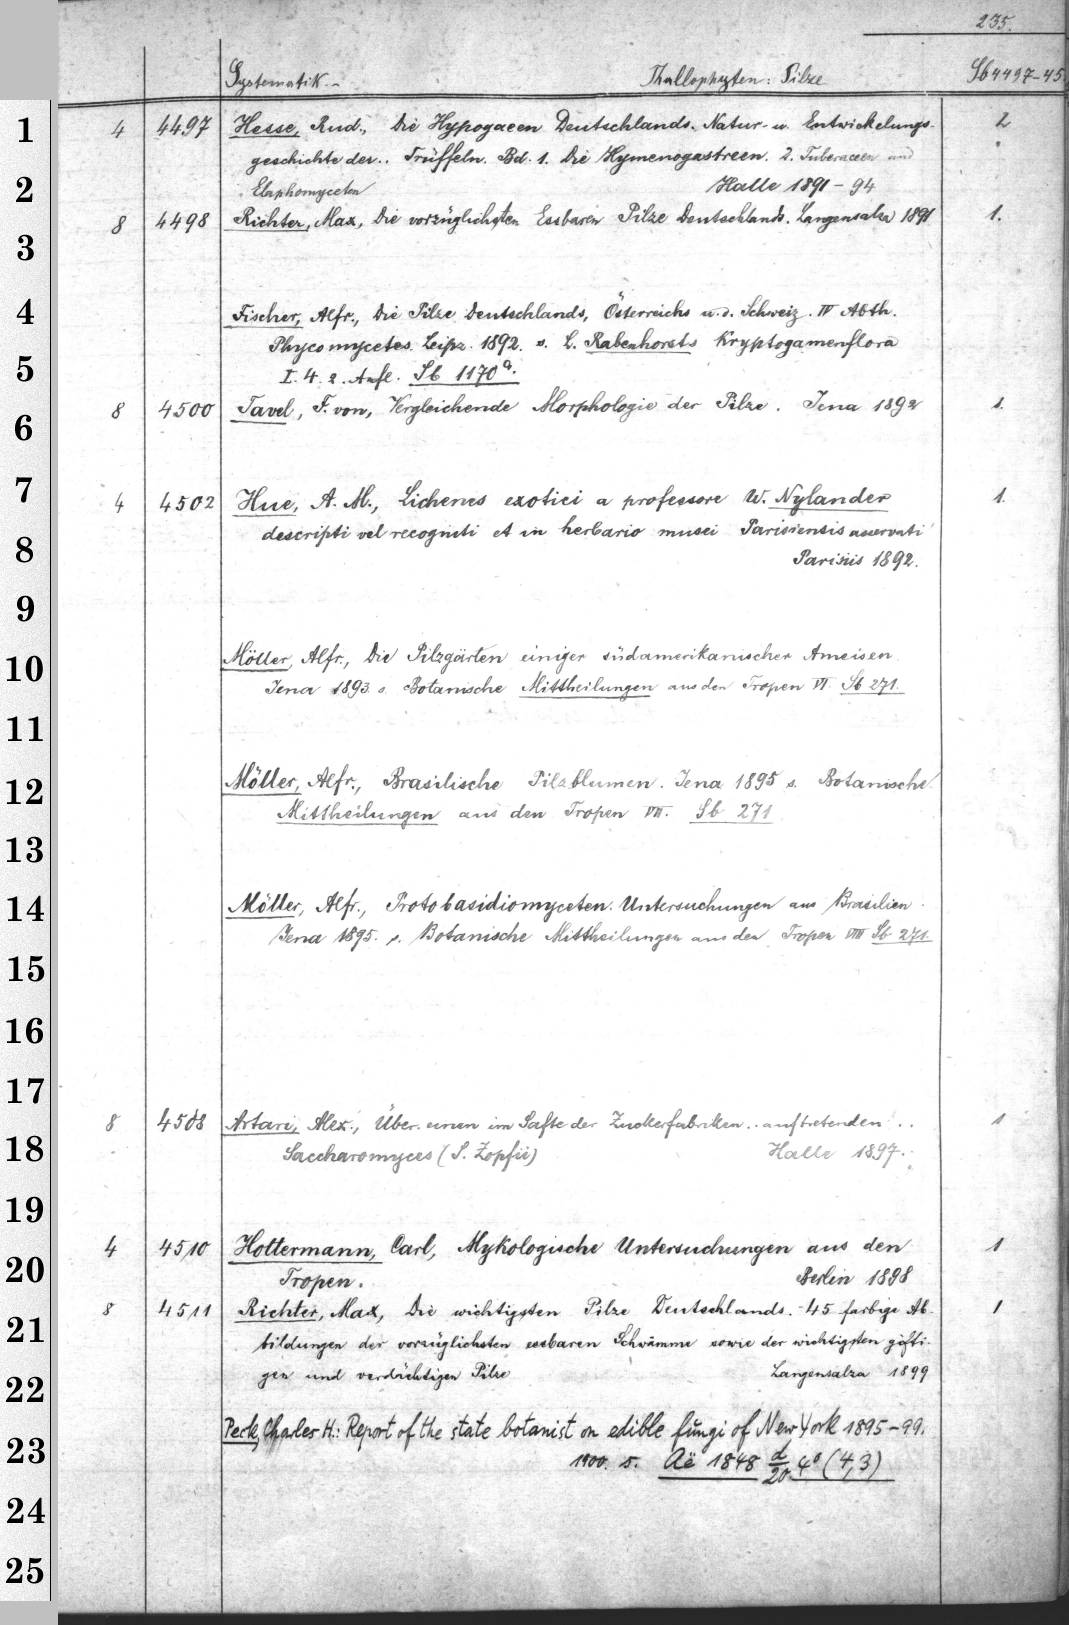 235.
Systematik.- Thallophyten: Pilze Sb 4497-45
1
4 4497 Hesse, Rud., Die Hypogaeen Deutschlands. Natur- u. Entwickelungs- 2
geschichte der.. Trüffeln. Bd. 1. Die Hymenogastreen. 2. Tuberaceen und
2
Elaphomyceten Halle 1891-94
8 4498 Richter, Max, Die vorzüglichsten Essbaren Pilze Deutschlands. Langensalza 1891 1.
3
4
Fischer, Alfr., Die Pilze Deutschlands, Österreichs u. d. Schweiz. IV Abth.
Phycomycetes. Leipz. 1892. s. L. Rabenhorsts Kryptogamenflora
5
I. 4. 2. Aufl. Sb 1170a.
8 4500 Tavel, F. von, Vergleichende Morphologie der Pilze. Jena 1892 1.
6
7
4 4502 Hue, A. M., Lichenes exotici a professore W. Nylander 1.
descripti vel recogniti et in herbario musei Parisiensis asservati
8
Parisiis 1892.
9
10
Möller, Alfr., Die Pilzgärten einiger südamerikanischer Ameisen.
Jena 1893 s. Botanische Mittheilungen aus den Tropen VI. Sb 271.
11
12
Möller, Alfr., Brasilische Pilzblumen. Jena 1895 s. Botanische
Mittheilungen aus den Tropen VII. Sb 271
13
14
Möller, Alfr., Protobasidiomyceten. Untersuchungen aus Brasilien.
Jena 1895. s. Botanische Mittheilungen aus den Tropen VIII Sb 271.
15
16
17
8 4508 Artari, Alex., Über einen im Safte der Zuckerfabriken.. auftretenden.. 1
18
Saccharomyces (S. Zopfii) Halle 1897.
19
4 4510 Hottermann, Carl, Mykologische Untersuchungen aus den 1
20
Tropen. Berlin 1898
8 4511 Richter, Max, Die wichtigsten Pilze Deutschlands. 45 farbige Ab- 1
21
bildungen der vorzüglichsten essbaren Schwämme sowie der wichtigsten gifti-
22
gen und verdächtigen Pilze Langensalza 1899
Peck, Charles H.: Report of the state botanist on edible fungi of New York 1895-99.
23
1900. s. Aë 1848 d/20 4° (4,3)
24
25